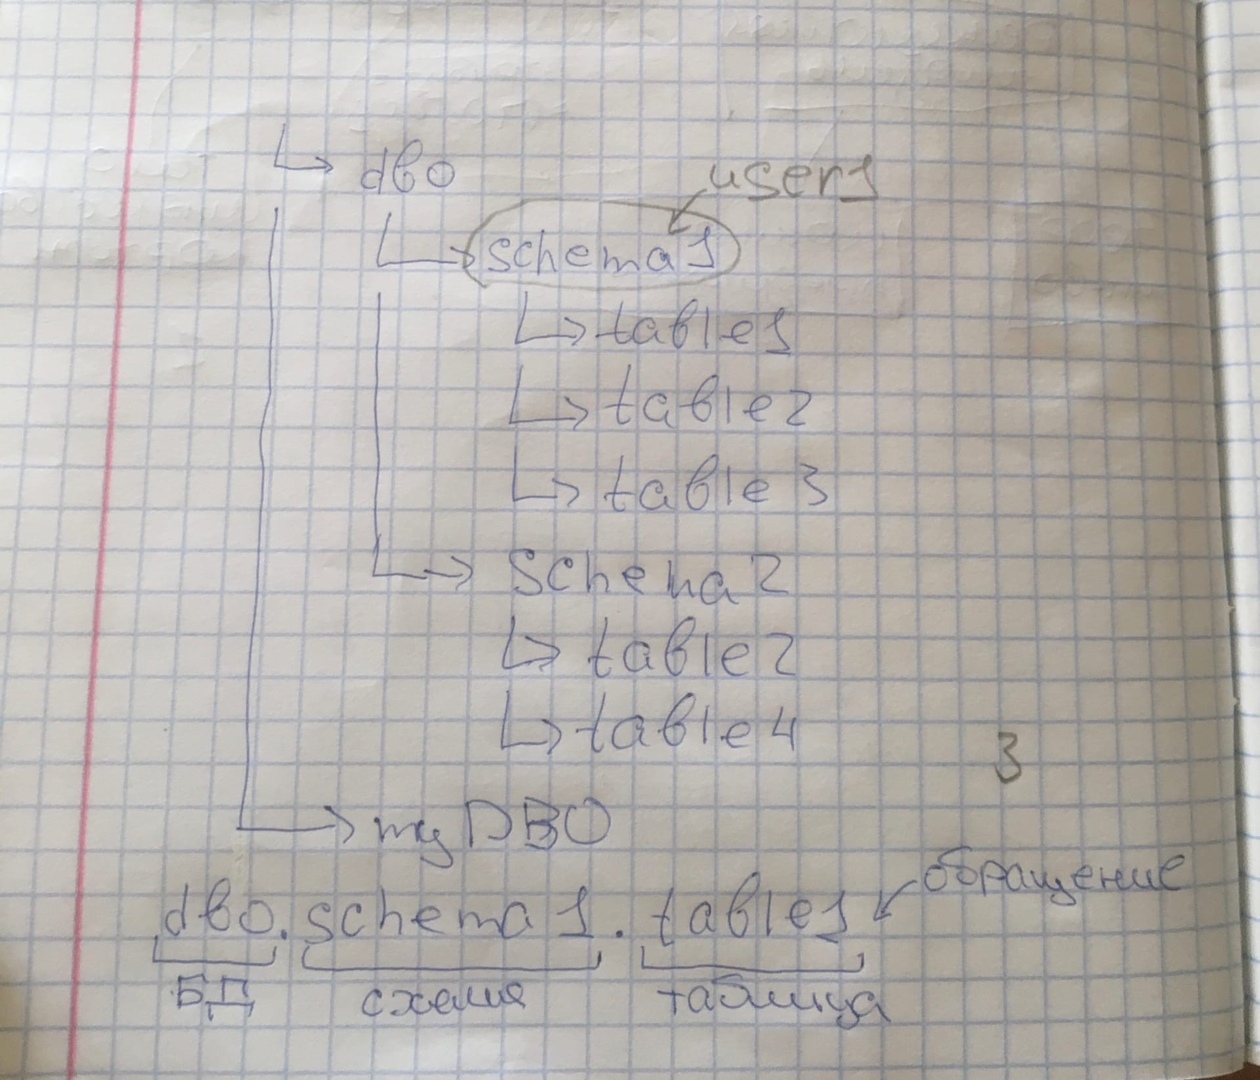 dbo
user1
schema1
table1
table2
table3
Schema2
table2
table4
3
myDBO
обращение
dbo.schema1.table1
БД схема таблица